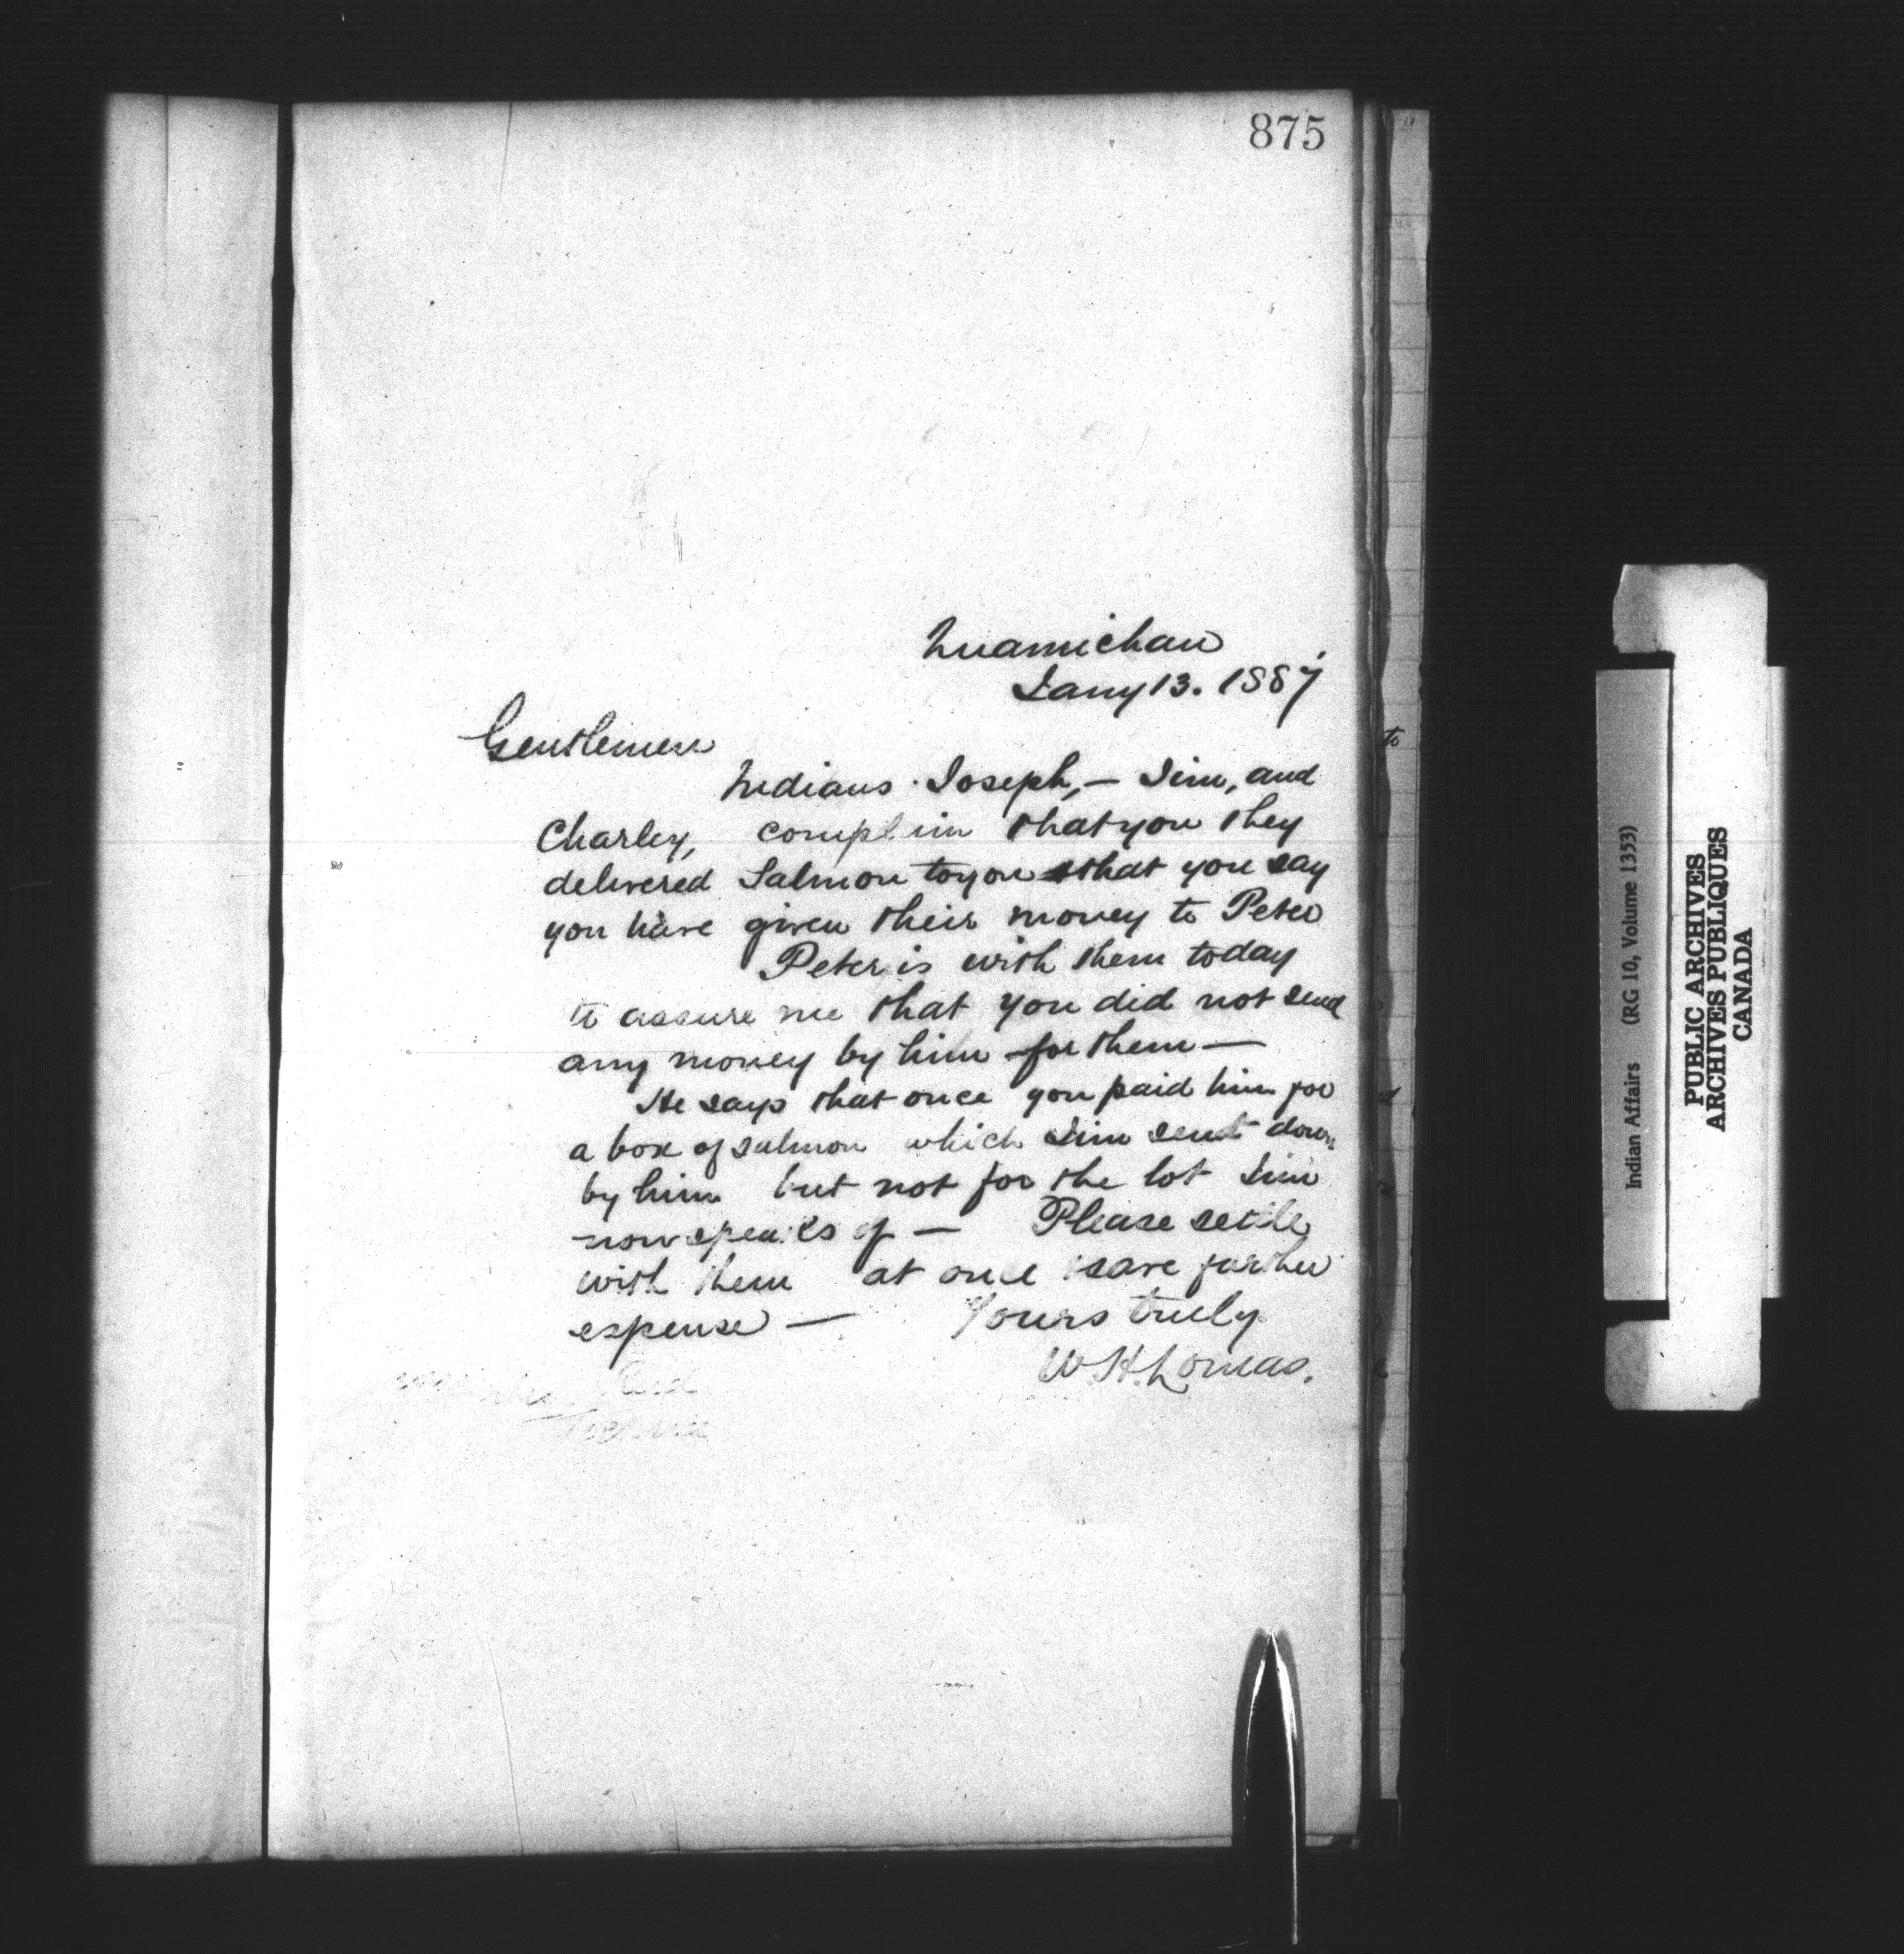 875
Quamichan
Jany 13. 1887
Gentlemen
Indians Joseph, — Jim, and
Charley, complain that you they
delivered Salmon to you & that you say
you have given their money to Peter
Peter is with them today
to assure me that you did not send
any money by him for them —
He says that once you paid him for
a box of salmon which Jim sent down
by him but not for the lot Jim
now speaks of — Please settle
with them at once & save further
expense — Yours truly
W.H. Lomas.
Indian Affairs (RG 10, Volume 1353)
PUBLIC ARCHIVES
ARCHIVES PUBLIQUES
CANADA